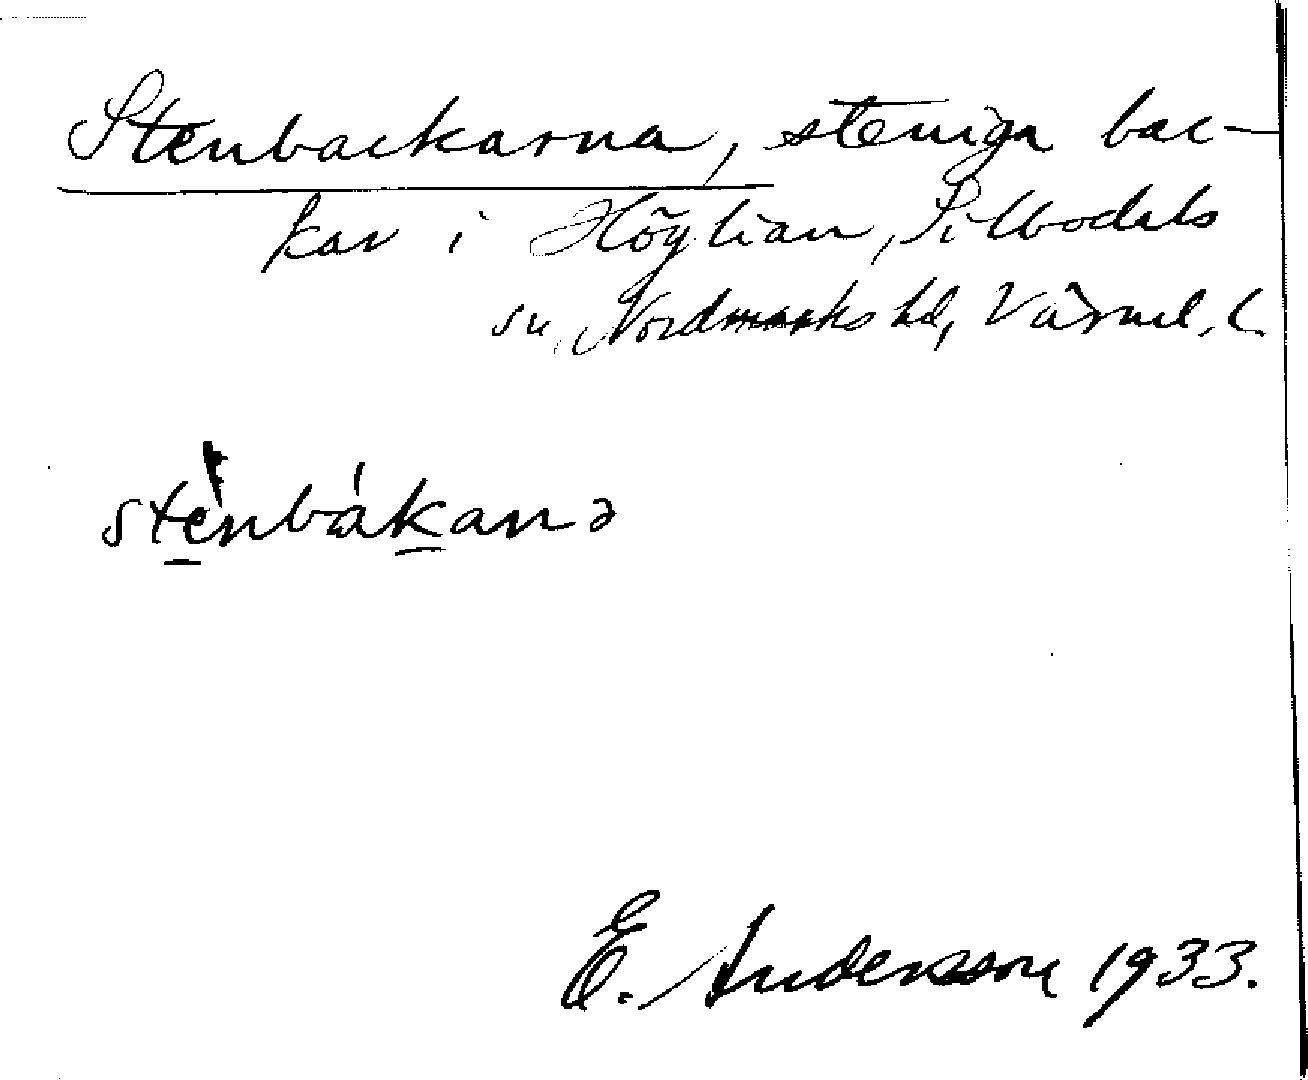 Stenbackarna, steniga bac-
kar i Höglian, Silbodals
sn, Nordmarks hd, Värml. l.
stènbákanə
E. Andersson 1933.